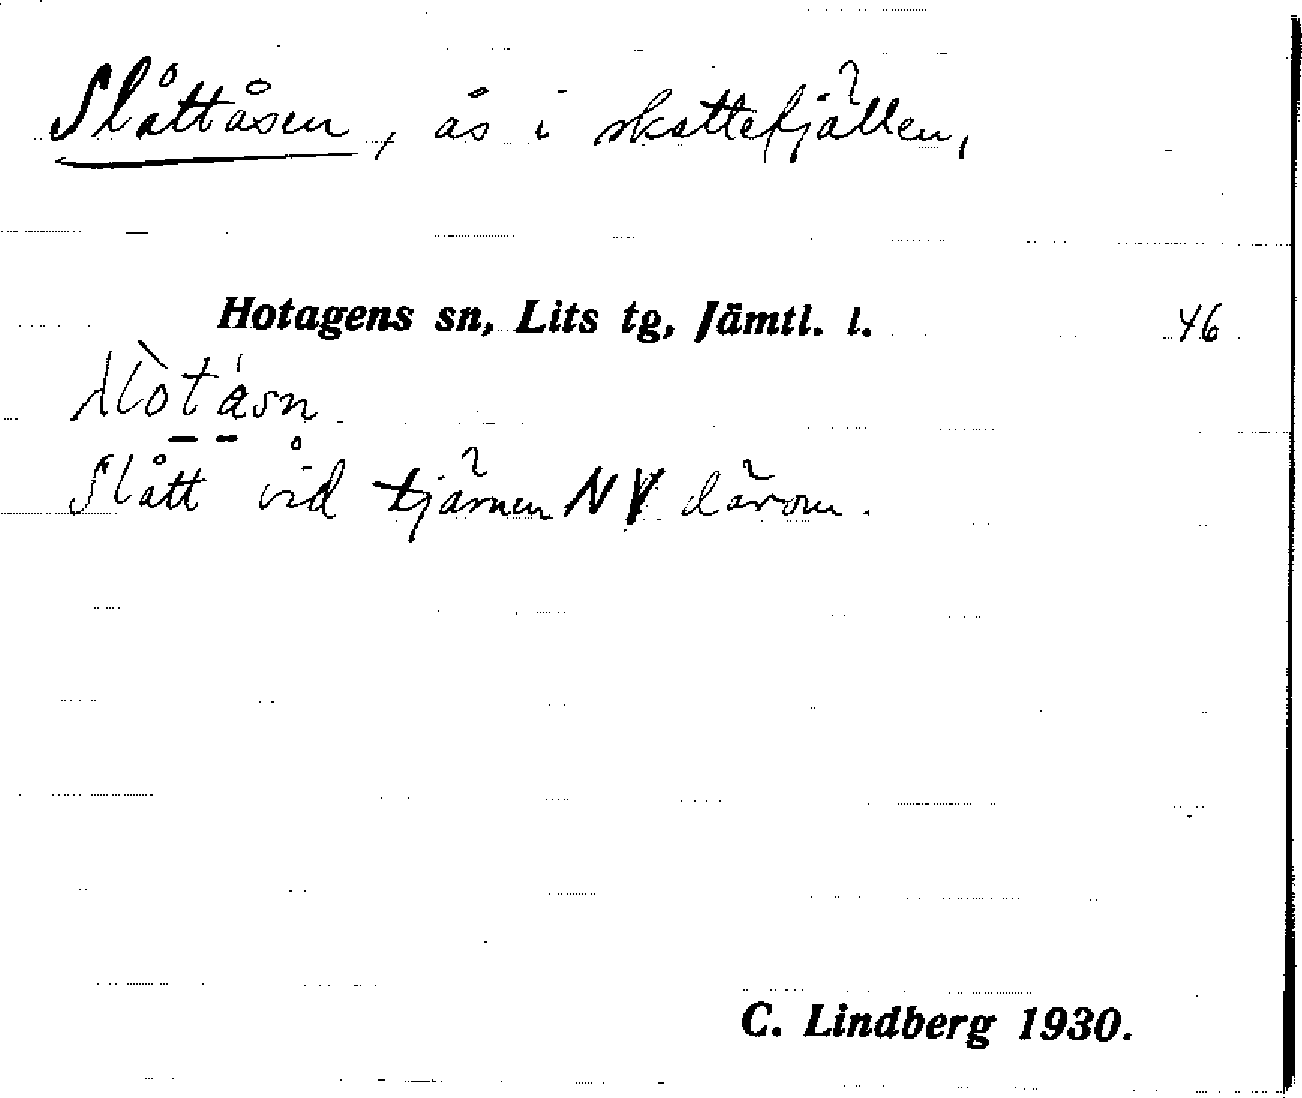 Slåttåsen, ås i skattefjällen,
Hotagens sn, Lits tg, Jämtl. l. 46
Slått vid tjärnen NV därom.
C. Lindberg 1930.